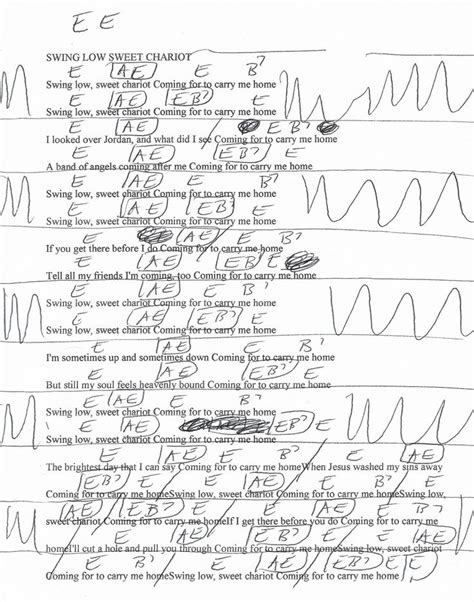 E E
SWING LOW SWEET CHARIOT
E AE E B7
Swing low, sweet chariot Coming for to carry me home
E AE EB7 E
Swing low, sweet chariot Coming for to carry me home
E AE E B7
I looked over Jordan, and what did I see Coming for to carry me home
E AE EB7 E
A band of angels coming after me Coming for to carry me home
E AE E B7
Swing low, sweet chariot Coming for to carry me home
E AE EB7 E
Swing low, sweet chariot Coming for to carry me home
E AE E B7
If you get there before I do Coming for to carry me home
E AE EB7 E
Tell all my friends I'm coming, too Coming for to carry me home
E AE E B7
Swing low, sweet chariot Coming for to carry me home
E AE EB7 E
Swing low, sweet chariot Coming for to carry me home
E AE E B7
I'm sometimes up and sometimes down Coming for to carry me home
E AE EB7 E
But still my soul feels heavenly bound Coming for to carry me home
E AE E B7
Swing low, sweet chariot Coming for to carry me home
E AE EB7 E
Swing low, sweet chariot Coming for to carry me home
E AE E B7 E AE
The brightest day that I can say Coming for to carry me homeWhen Jesus washed my sins away
EB7 E E AE E B7 E
Coming for to carry me homeSwing low, sweet chariot Coming for to carry me homeSwing low,
AE EB7 E E AE E B7
sweet chariot Coming for to carry me homeIf I get there before you do Coming for to carry me
E AE EB7 E E AE
homeI'll cut a hole and pull you through Coming for to carry me homeSwing low, sweet chariot
E B7 E AE EB7 E E
Coming for to carry me homeSwing low, sweet chariot Coming for to carry me home